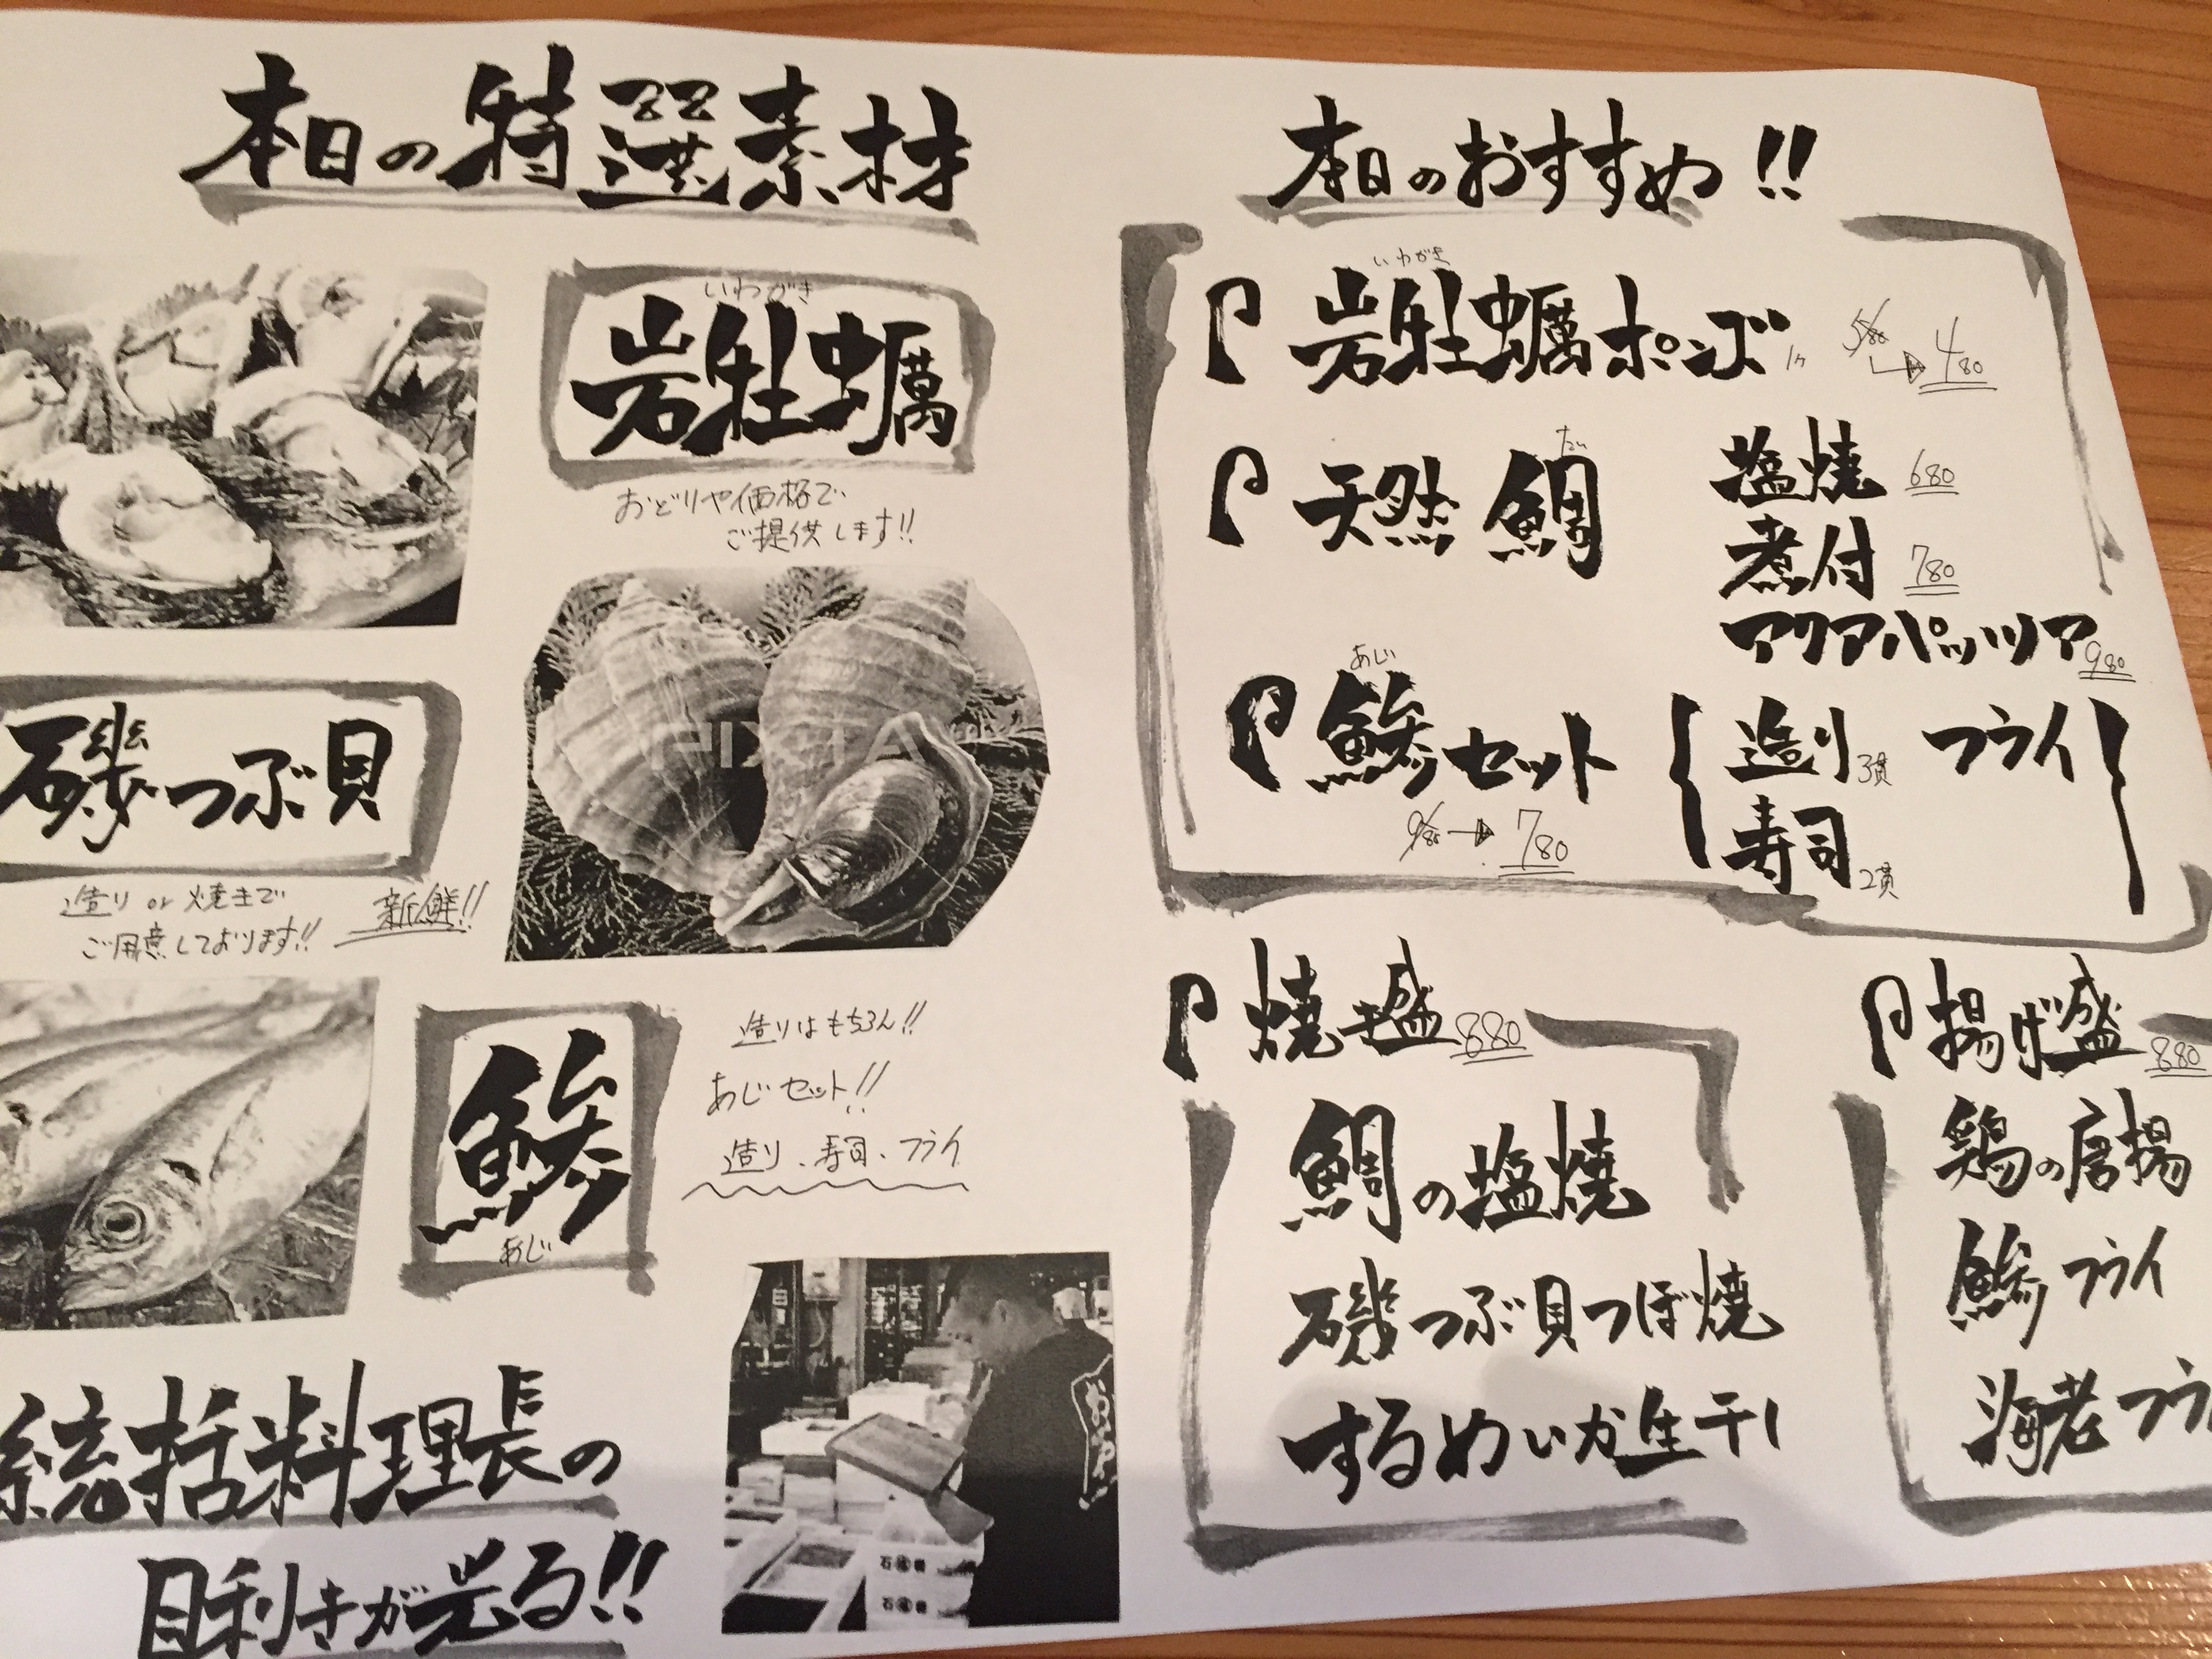 本日の特選素材
いわがき
岩牡蠣
おどりや価格で
ご提供します!!
磯つぶ貝
造り or 焼きで
ご用意しております!!
新鮮!!
PIXTA
鯵
あじ
造りはもちろん!!
あじセット!!
造り、寿司、フライ
統括料理長の
目利きが光る!!
本日のおすすめ!!
いわがき
岩牡蠣ポンズ 1ヶ 580 → 480
たい
天然 鯛
塩焼 680
煮付 780
アクアパッツァ 980
あじ
鯵セット
980 → 780
造り 3貫 フライ
寿司 2貫
焼き盛 880
鯛の塩焼
磯つぶ貝つぼ焼
するめいか生干し
揚げ盛 880
鶏の唐揚
鯵フライ
海老フラ